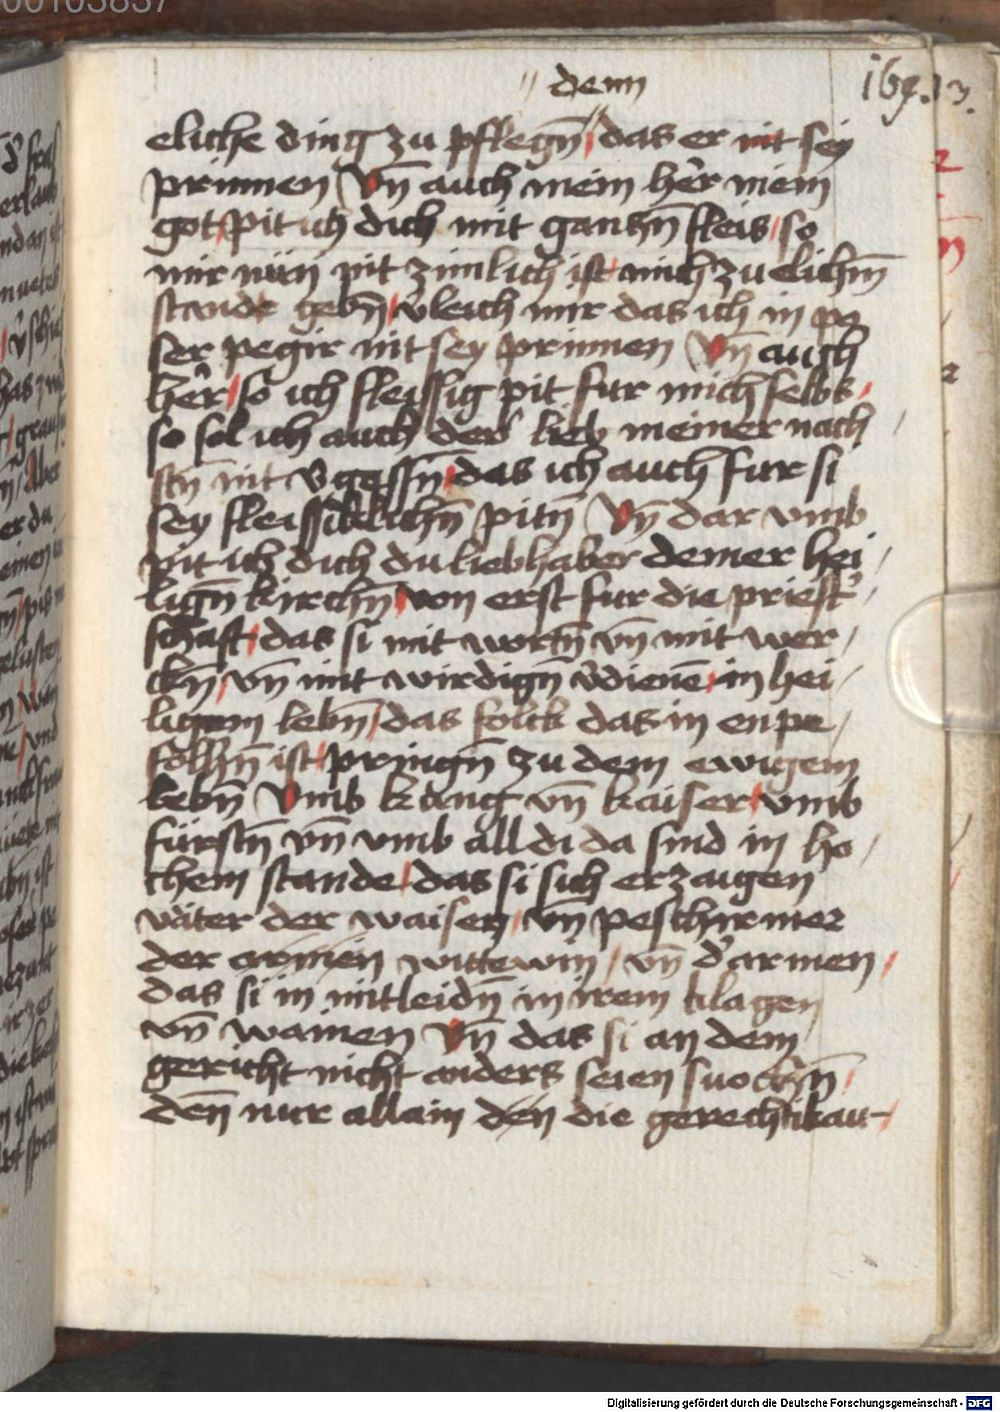 00103837
denn
169.
eliche ding zu pflegn̄ / das er nit sey
prinnen Vn̄ auch mein her mein
got / pit ich dich mit ganczn̄ fleis / so
mir nün nit zimlich ist mich zu elichm̄
stande gebn̄ / v̄leich mir das ich in po
ser pegir nit sey prinnen Vn̄ auch
her / so ich fleissig pit fur mich selbs /
so sol ich auch der lieb meiner nach
stn̄ nit v̄gessn̄ / das ich auch fur si
sey fleissiklichn̄ pitn̄ Vn̄ dar vmb
pit ich dich du liebhaber deiner hei
lign̄ kirchn̄ / von erst fur die priest'
schaft / das si mit wortn̄ vn̄ mit wer
ckn̄ / vn̄ mit wirdign̄ v̄dienē / in hei
ligem lebn̄ / das folck das in enpe
folhn̄ ist / pringn̄ zu dem ewigem
lebn̄ Vmb künig vn̄ kaiser / vmb
fürstn̄ vn̄ vmb all di da sind in ho
chem stande / das si sich erzaigen
väter der waisen / vn̄ peschirmer
der armen wittewin / vn̄ d' armen /
das si in mitleidn̄ in irem klagen
vn̄ wainen Vn̄ das si an dem
gericht nicht anders seien suochn̄ /
den̄ nur allain den die gerechtikait /
Digitalisierung gefördert durch die Deutsche Forschungsgemeinschaft - DFG